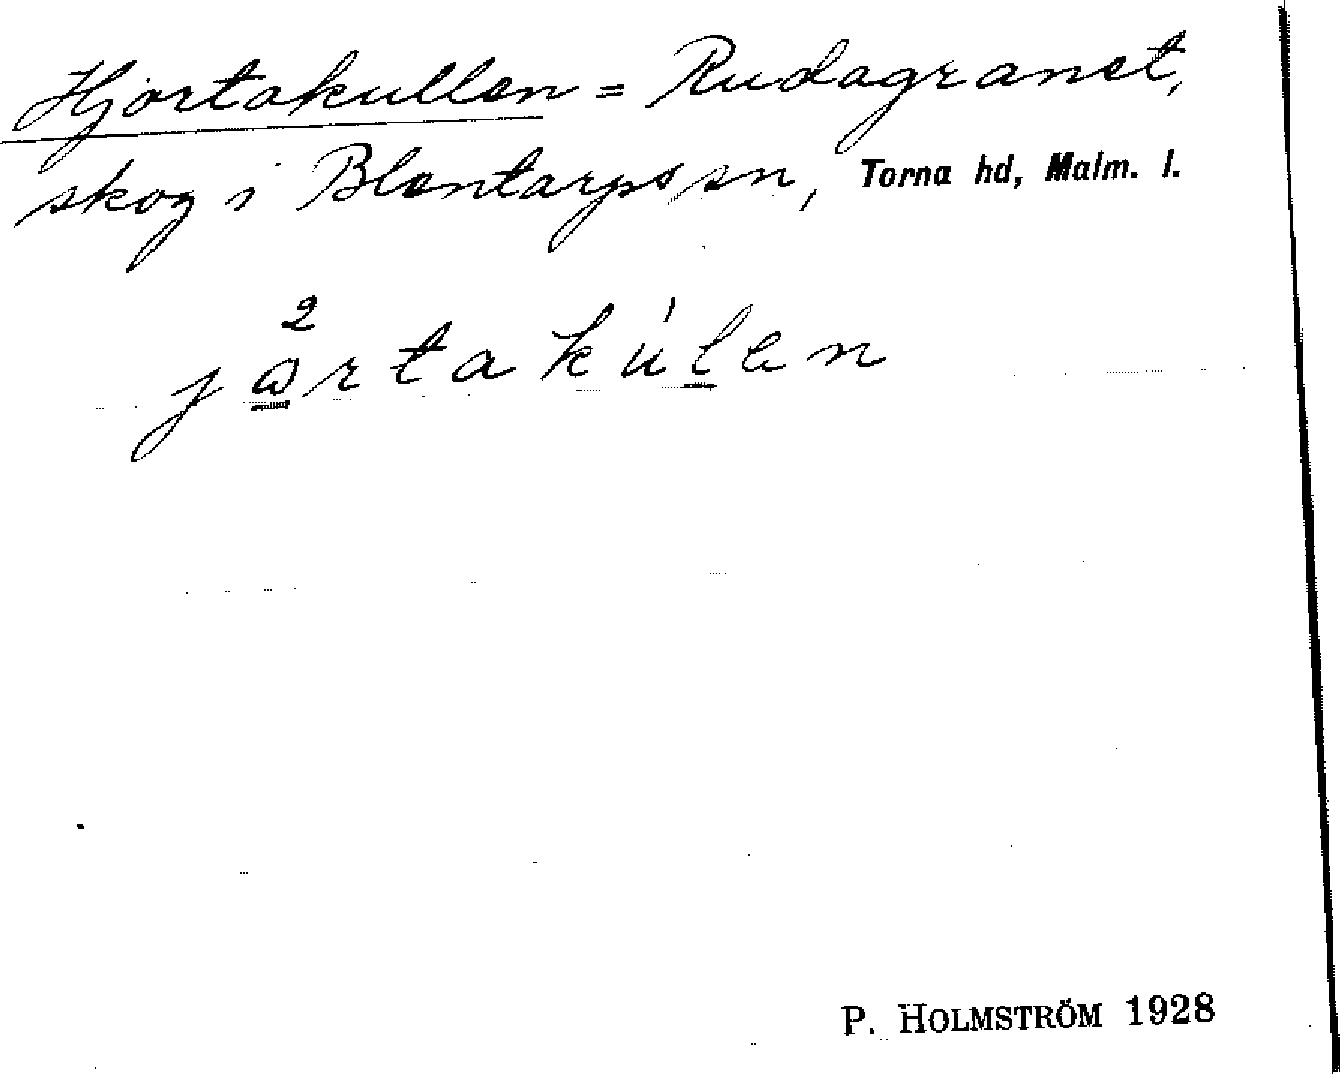 Hjortakullen = Rudagranet,
skog i Blentarps sn, Torna hd, Malm. l.
2
jɷrtakúlen
P. HOLMSTRÖM 1928